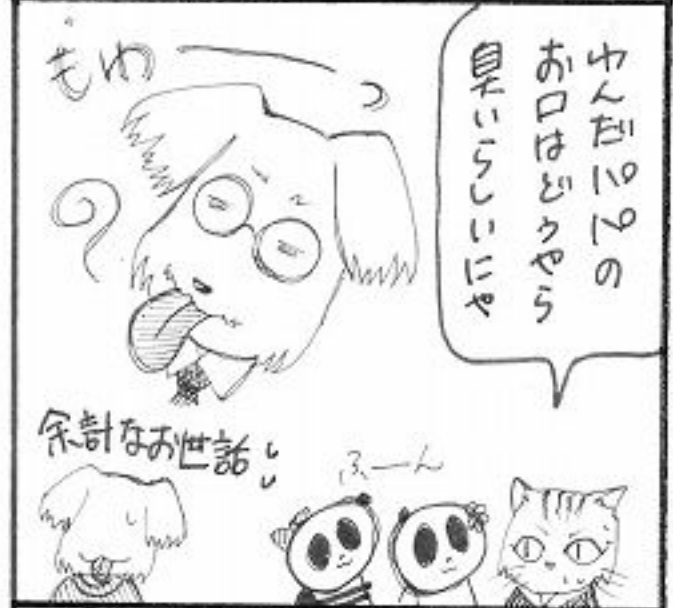 わんだパパの
お口はどうやら
臭いらしいにゃ
もわ〜っ
?
余計なお世話!!
ふーん